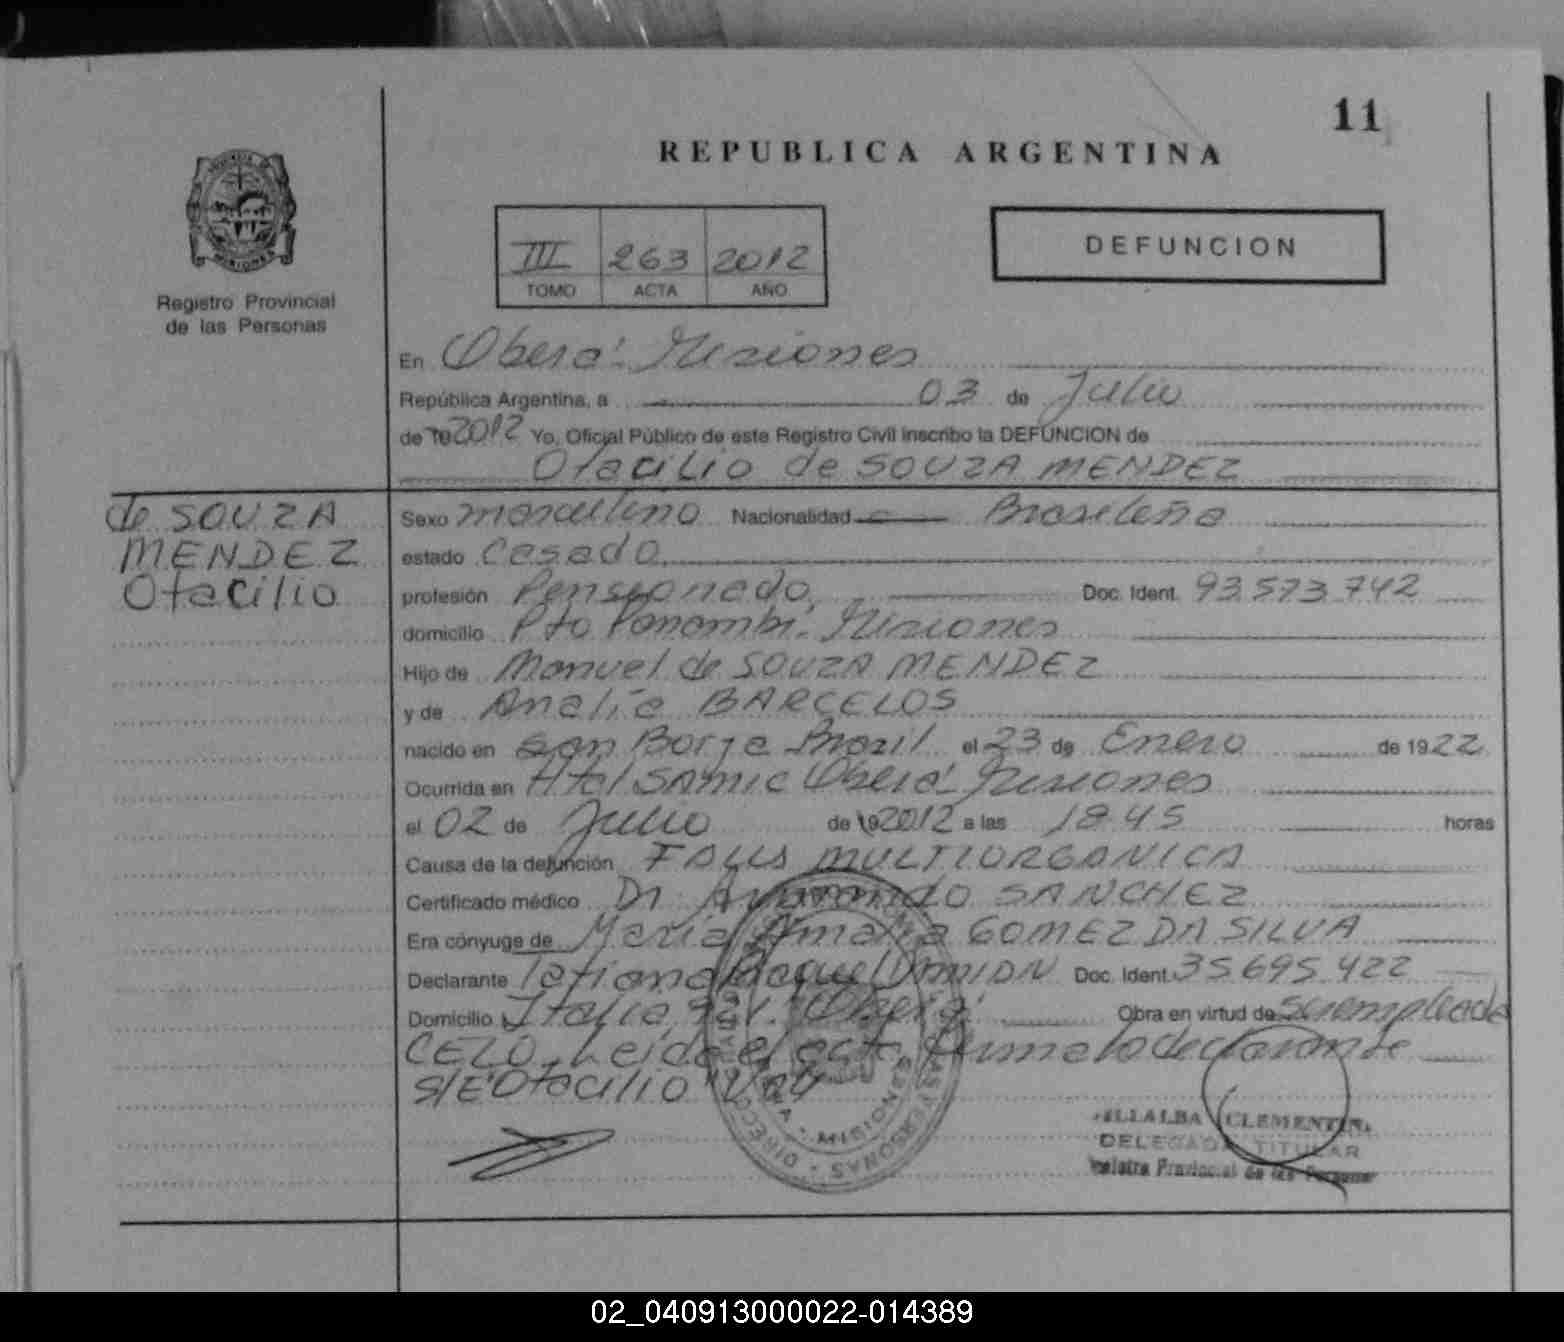 11
REPUBLICA ARGENTINA
Registro Provincial
de las Personas
III 263 2012
TOMO ACTA AÑO
DEFUNCION
En Oberá - Misiones
República Argentina, a 03 de Julio
de 19 2012 Yo, Oficial Público de este Registro Civil inscribo la DEFUNCION de
Otacilio de SOUZA MENDEZ
de SOUZA
MENDEZ
Otacilio
Sexo masculino Nacionalidad Brasileña
estado Casado
profesión Pensionado, Doc. Ident. 93.573.742
domicilio Pto Panambi - Misiones
Hijo de Manuel de SOUZA MENDEZ
y de Analia BARCELOS
nacido en San Borja Brazil el 23 de Enero de 1922
Ocurrida en Htal SAMIC Oberá - Misiones
el 02 de Julio de 19 2012 a las 18.45 horas
Causa de la defunción FALLA MULTIORGANICA
Certificado médico Dr Armando SANCHEZ
Era cónyuge de Maria Amalia GOMEZ DA SILVA
Declarante Tatiana Raquel Doc. Ident. 35.695.422
Domicilio Italia Oberá Obra en virtud de ser empleada
CELO. Leida el acta firma la declarante
S/E Otacilio Vale
MISIONES
DE LAS PERSONAS
VILLALBA CLEMENTINA
DELEGADA TITULAR
Registro Provincial de las Personas
02_040913000022-014389